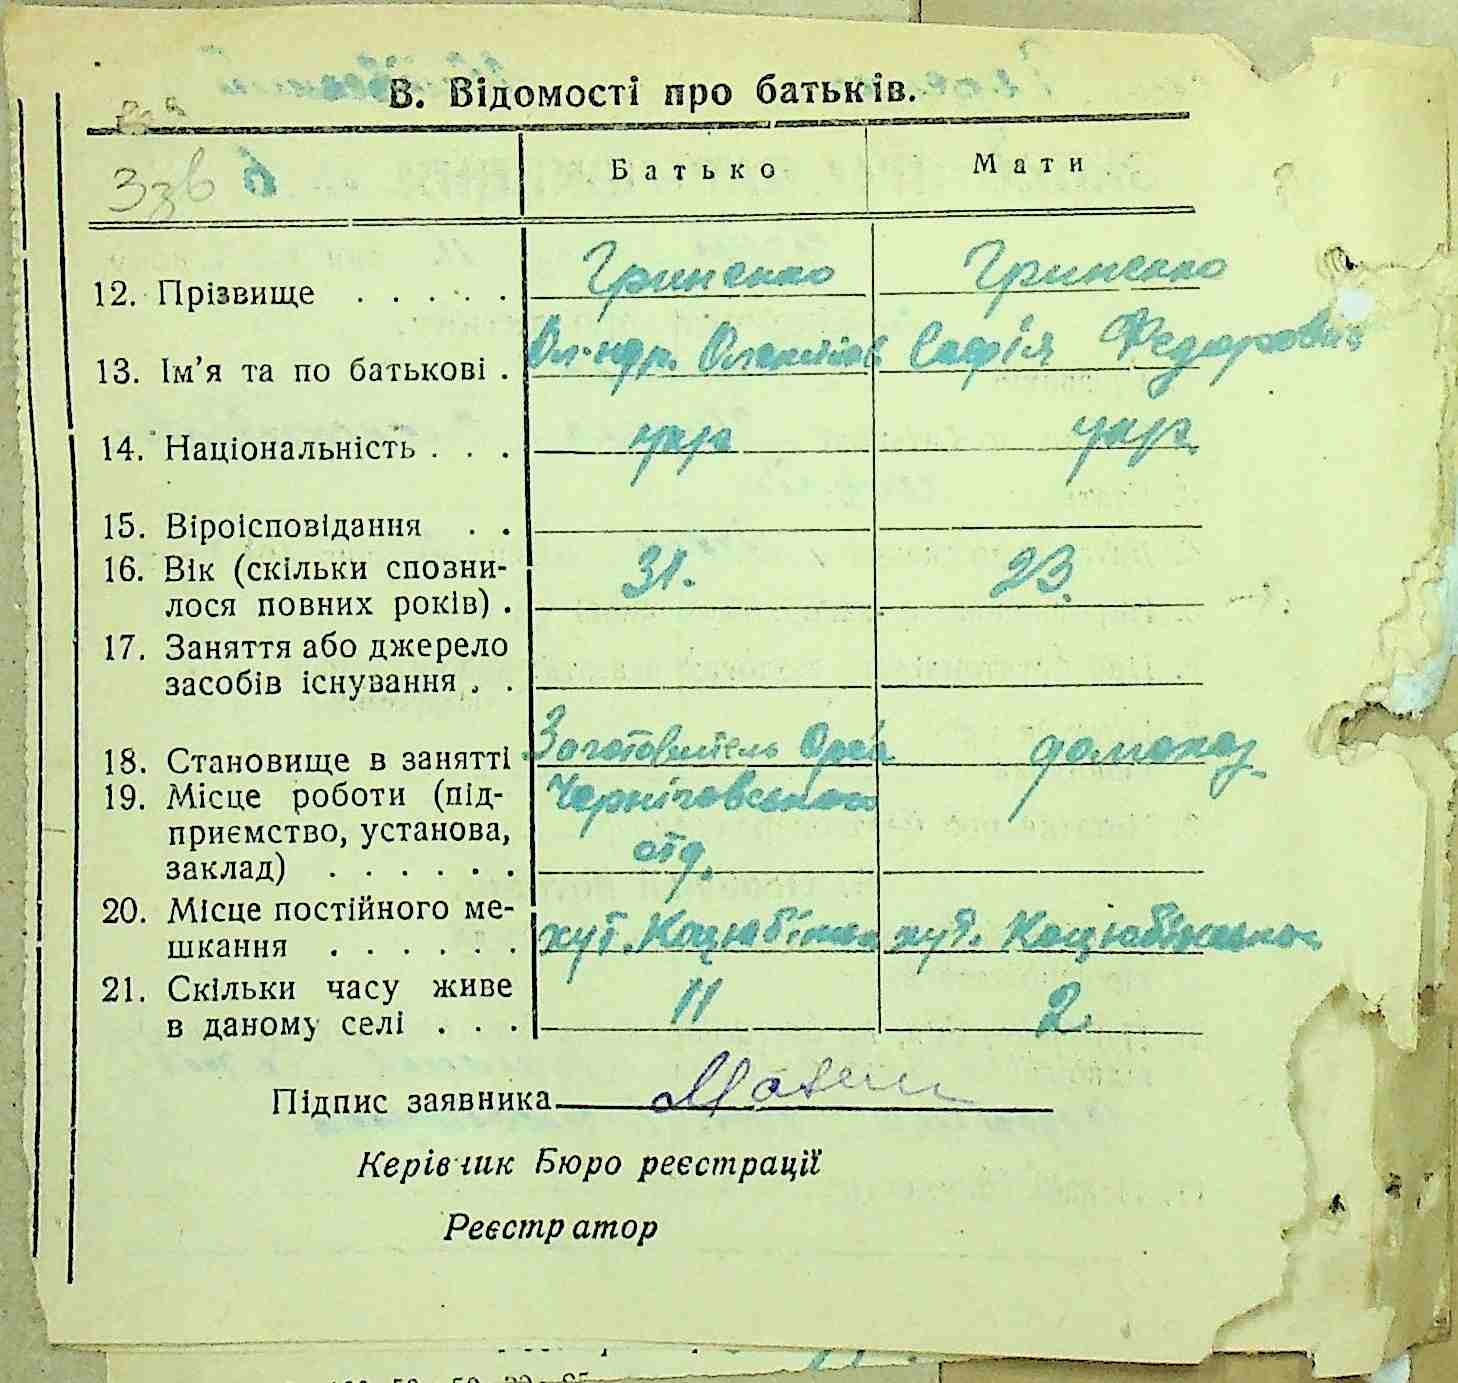 В. Відомості про батьків.
Ззв
Батько Мати
12. Прізвище . . . . . Гриненко Гриненко
13. Ім’я та по батькові . Ол-ндр. Софія Федоровна
14. Національність . . . укр укр
15. Віроісповідання . .
16. Вік (скільки спозни-
лося повних років) . 31. 23.
17. Заняття або джерело
засобів існування . .
18. Становище в занятті Заготовитель домохоз
19. Місце роботи (під-
приємство, установа,
заклад) . . . . . . отд.
20. Місце постійного ме-
шкання . . . . . . хут. хут.
21. Скільки часу живе
в даному селі . . . 11 2.
Підпис заявника
Керівник Бюро реєстрації
Реєстратор